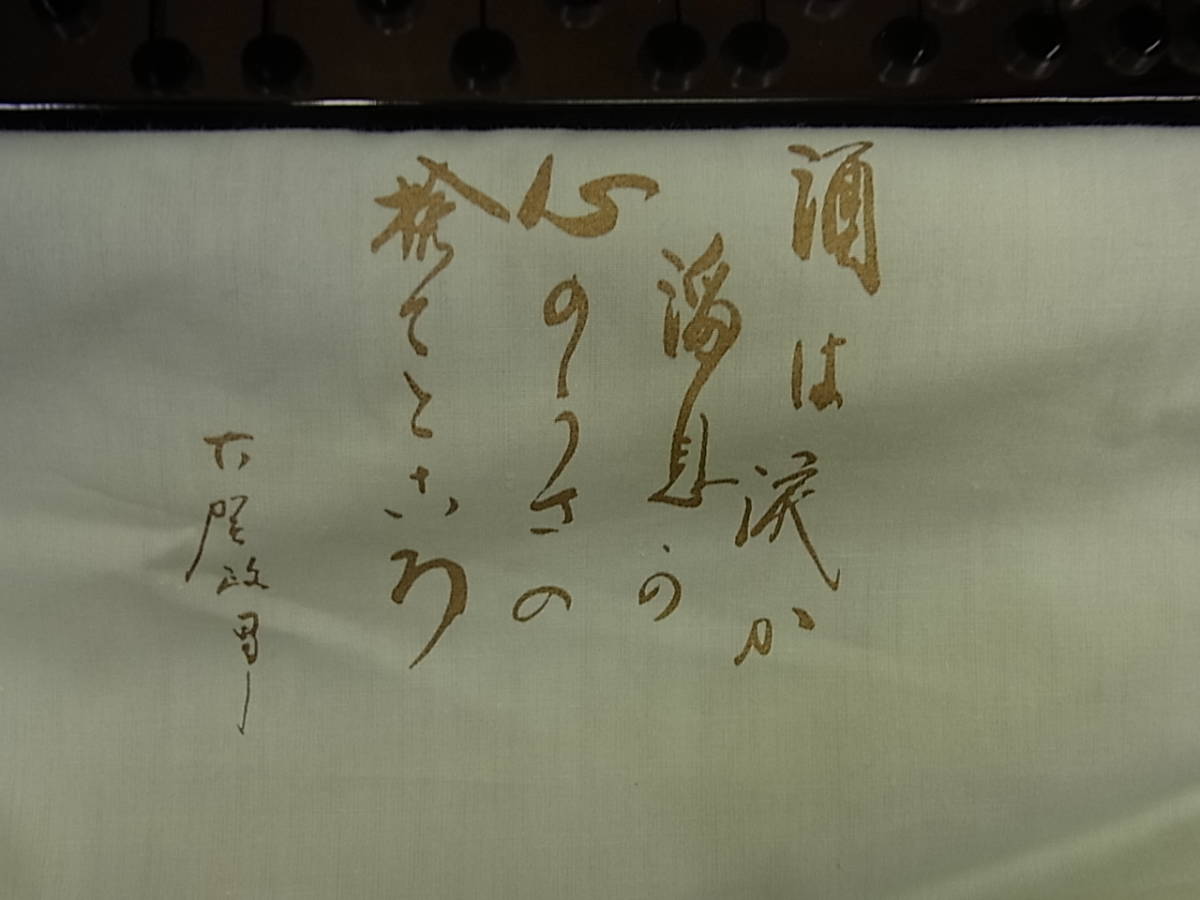 酒は涙か
溜息か
心のうさの
捨てところ
古賀政男